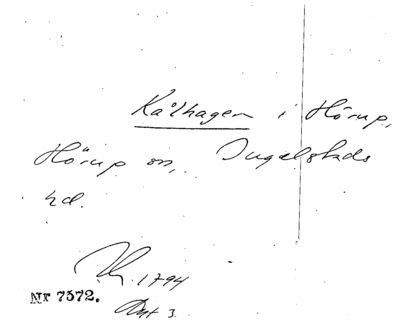 Kålhagen i Hörup,
Hörup sn, Ingelstads
hd.
1794
Nr 7572.